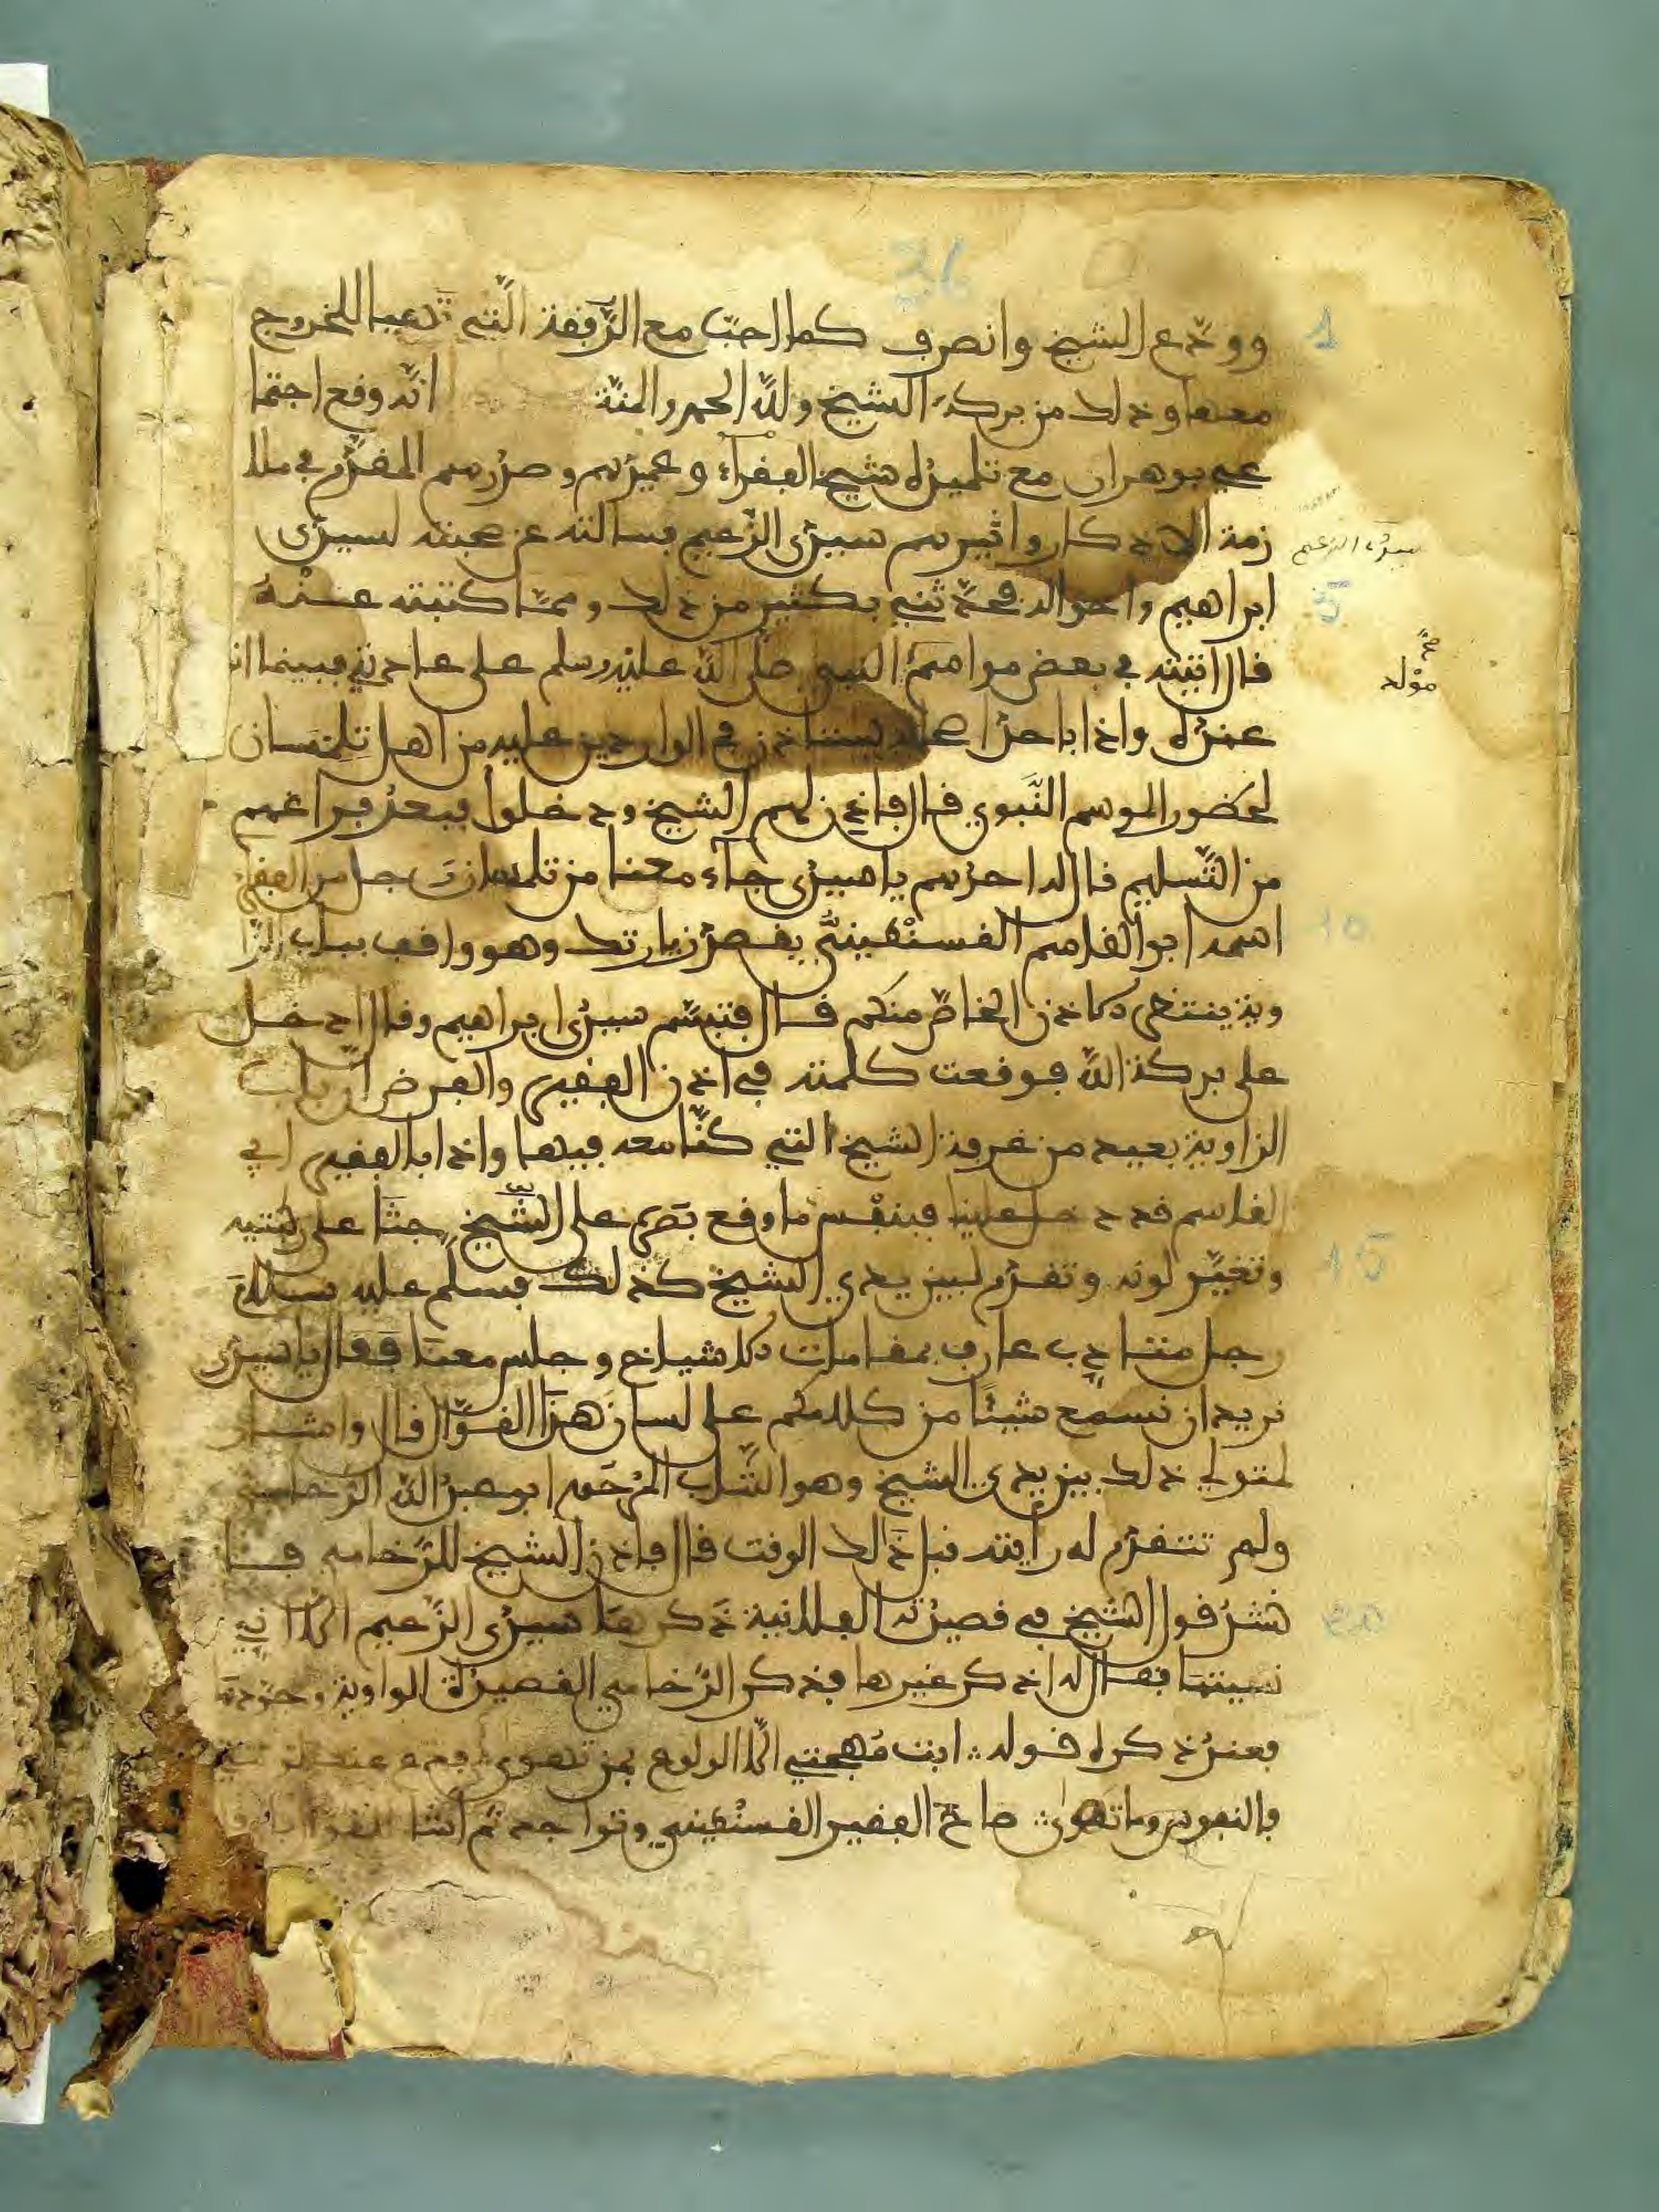 36
1
وودع الشيخ وانصرف كما احب مع الرفقة التي تهيا للخروج
معها وذلك من بركة الشيخ ولله الحمد والمنة انه وقع اجتما
عي بوهران مع تلميذه شيخ الفقراء وعميدهم وصدرهم المقدم في ملا
زمة الاذكار واثيرهم سيدي الزعيم فسالته عن صحبته لسيدي
سيدي الزعيم
5
ابراهيم واحواله فحدثني بكثير من ذلك ومما كتبته عنه
قال اتيته في بعض مواسم النبي صلى الله عليه وسلم على عادتي فبينما انا
مولد
عنده واذا باحد اصحابه يستاذن في الواردين عليه من اهل تلمسان
لحضور الموسم النبوي قال فاذن لهم الشيخ ودخلوا فبعد فراغهم
من التسليم قال له احدهم يا سيدي جاء معنا من تلمسان رجل من الفقراء
10
اسمه ابو القاسم القسنطيني يقصد زيارتك وهو واقف بباب الزا
وية ينتظر الاذن الخاص منكم قال فتبسم سيدي ابراهيم وقال ادخل
على بركة الله فوقعت كلمته في اذن الفقير والغرض ان باب
الزاوية بعيد من غرفة الشيخ التي كنا معه فيها واذا بالفقير ابي
القاسم قد دخل علينا فبنفس ما وقع بصره على الشيخ جثا على ركبتيه
15
وتغير لونه وتقدم لبين يدي الشيخ كذلك فسلم عليه سلام
رجل متادب عارف بمقامات الاشياخ وجلس معنا فقال يا سيدي
نريد ان نسمع شيئا من كلامكم على لسان هذا القوال قال واشار
لمتولي ذلك بين يدي الشيخ وهو الشاب المرحوم ابو عبد الله الرخامي
ولم تتقدم له رايته قبل ذلك الوقت قال فاذن الشيخ للرخامي فا
20
نشد قول الشيخ في قصيدته الفلانية ذكرها سيدي الزعيم الا اني
نسيتها فقال له اذكر غيرها فذكر الرخامي القصيدة الواوية
فعند ذكره قوله ابت مهجتي الا الولوع بمن تهوى فدع عنك
بالنفوس وما تهوى صاح الفقير القسنطيني وتواجد ثم